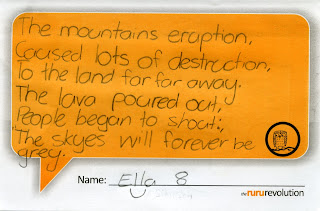 The mountains eruption,
Caused lots of destruction,
To the land far far away.
The lava poured out,
People began to shout:,
"The skyes will forever be
grey.
Name: Ella 8
the ruru revolution